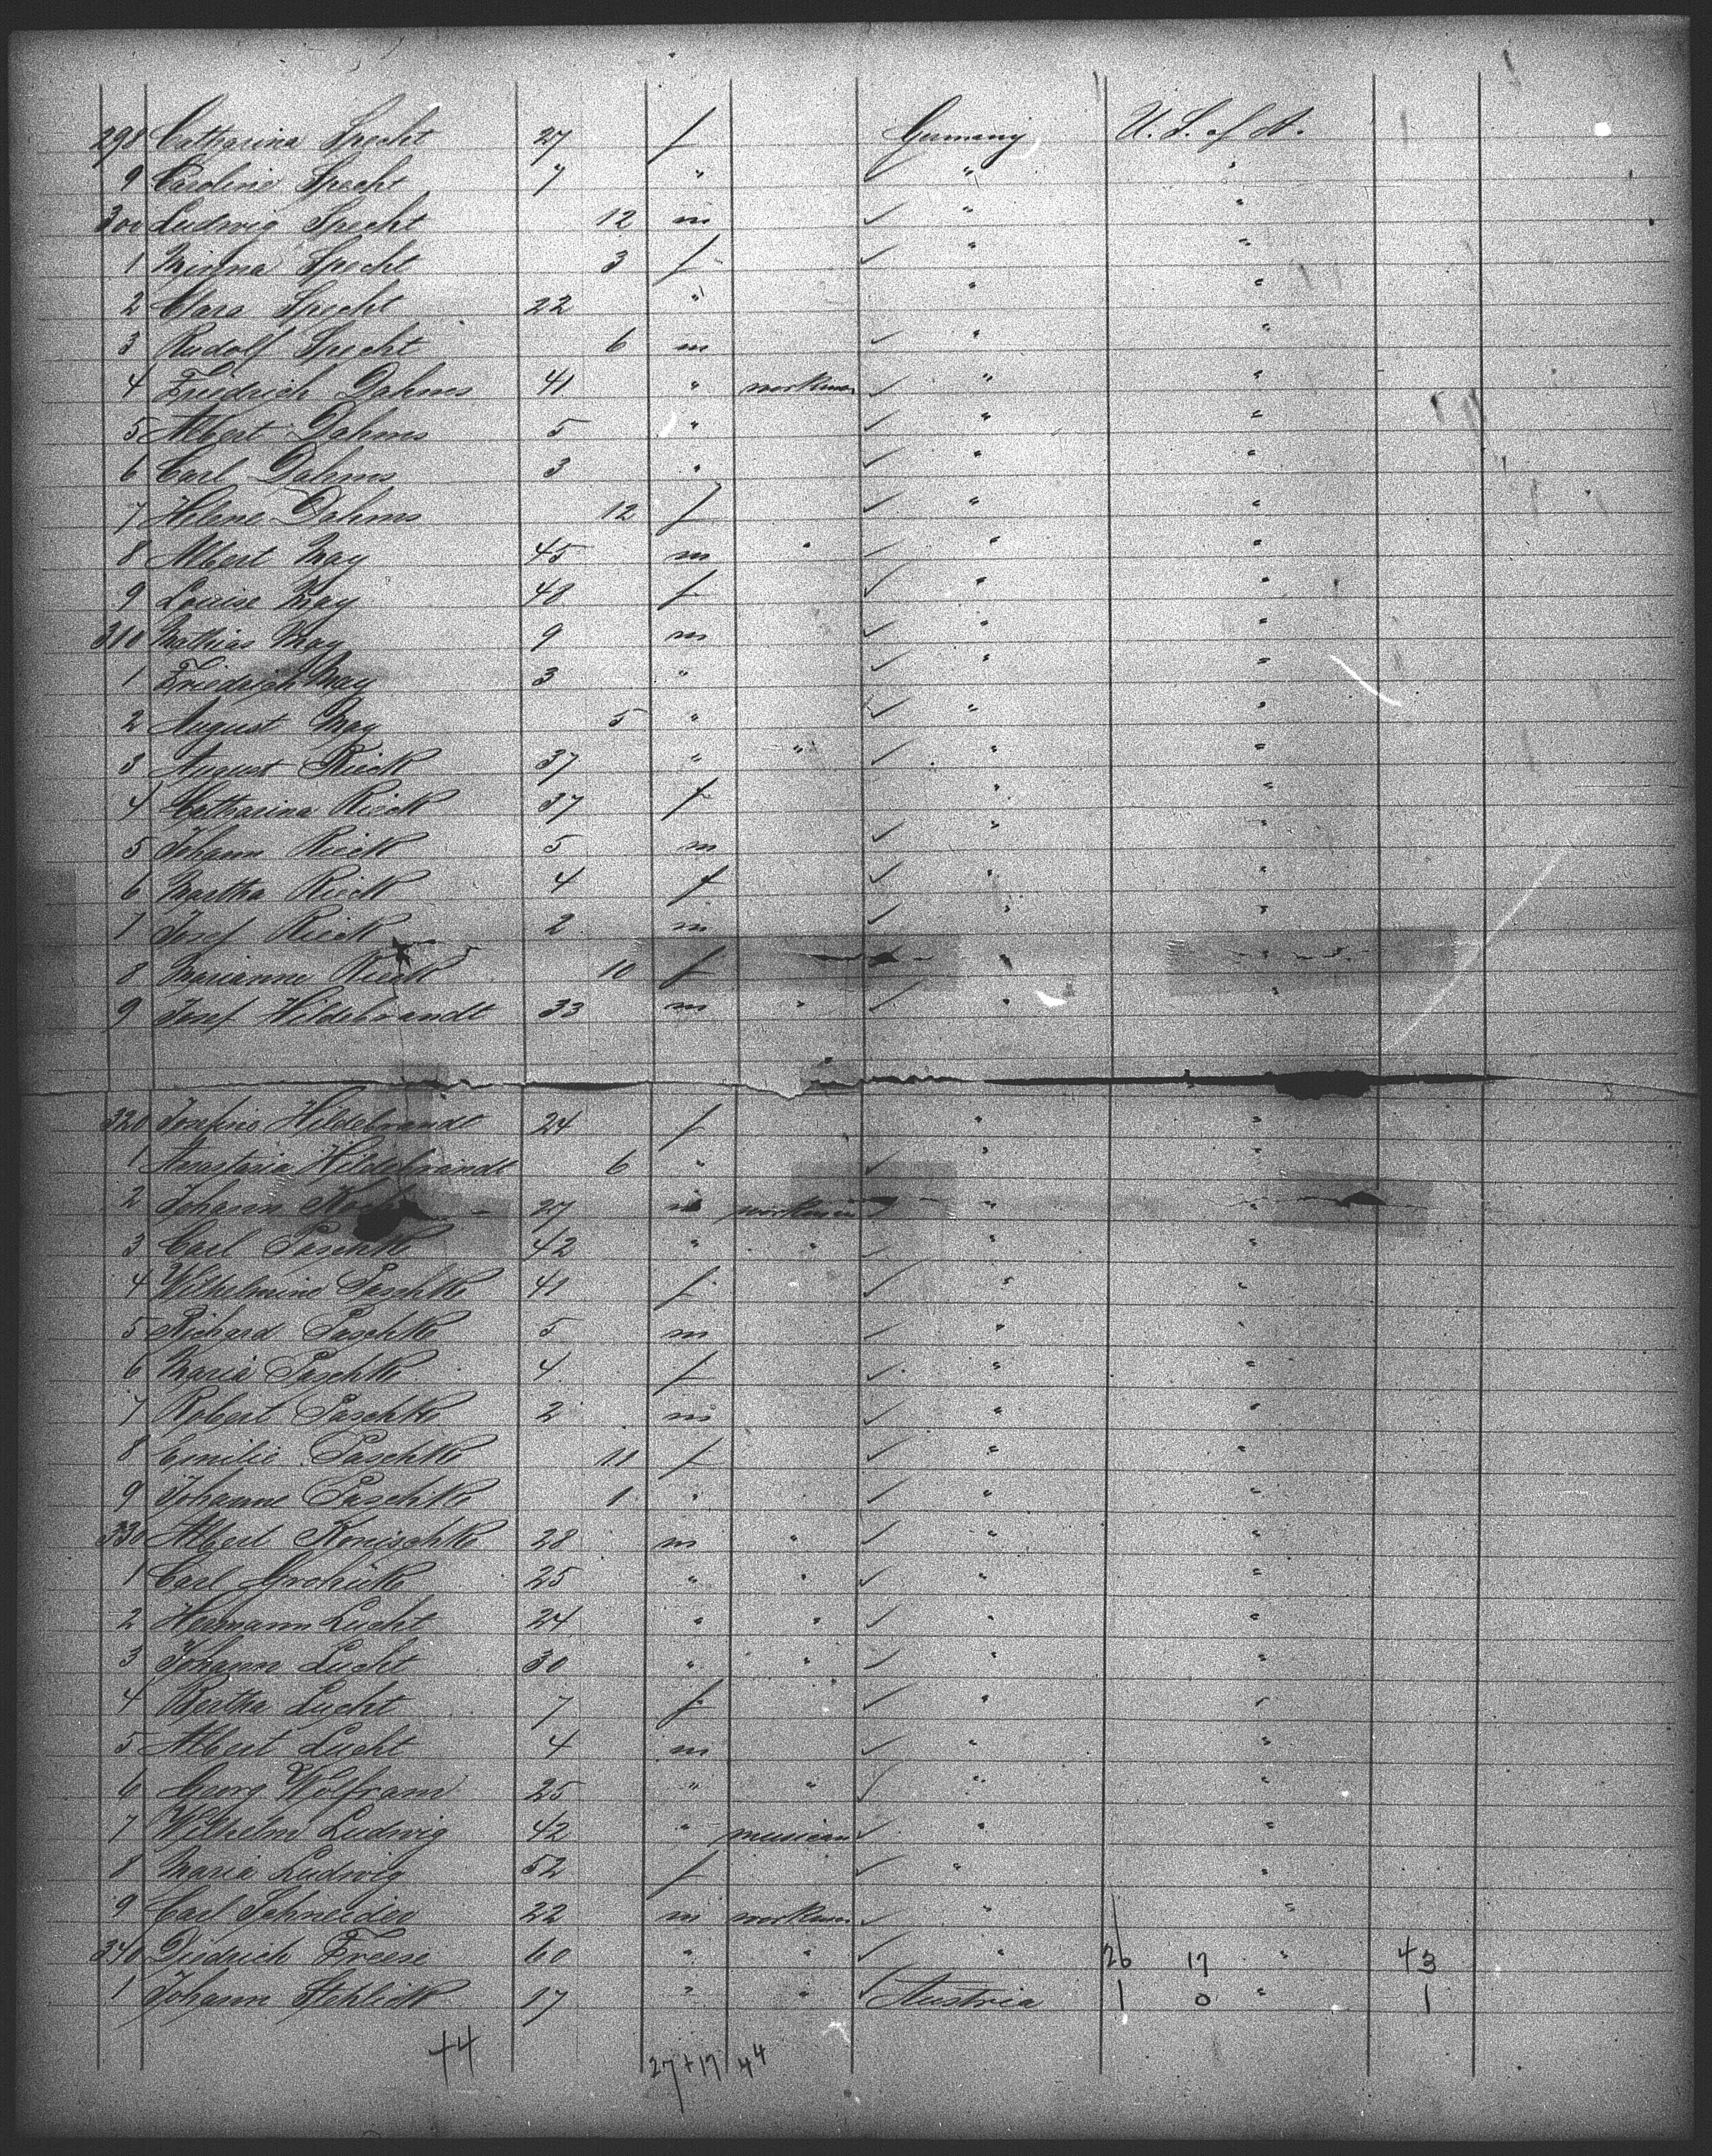 298 Catharina Specht 27 f Germany U. S. of A.
9 Caroline Specht 7 " " "
300 Ludwig Specht 12 m ✓ " "
1 Minna Specht 3 f ✓ " "
2 Clara Specht 22 " " "
3 Rudolf Specht 6 m ✓ " "
4 Friedrich Dahms 41 " workman ✓ " "
5 Albert Dahms 5 " ✓ " "
6 Carl Dahms 3 " ✓ " "
7 Helene Dahms 12 f ✓ " "
8 Albert May 45 m " ✓ " "
9 Louise May 40 f ✓ " "
310 Mathias May 9 m ✓ " "
1 Friedrich May 3 " ✓ " "
2 August May 5 " ✓ " "
3 August Rieck 37 " " ✓ " "
4 Catharina Rieck 37 f " "
5 Johann Rieck 5 m ✓ " "
6 Martha Rieck 4 f ✓ " "
7 Josef Rieck 2 m ✓ " "
8 Marianne Rieck 10 f " "
9 Josef Hildebrandt 33 m " ✓ " "
320 Josefine Hildebrandt 24 f " "
1 Anastasia Hildebrandt 6 " ✓ " "
2 Johann 27 m workman ✓ " "
3 Carl Paschke 42 " " ✓ " "
4 Wilhelmine Paschke 41 f ✓ " "
5 Richard Paschke 5 m ✓ " "
6 Maria Paschke 4 f ✓ " "
7 Robert Paschke 2 m ✓ " "
8 Emilie Paschke 11 f ✓ " "
9 Johanne Paschke 1 " ✓ " "
330 Albert Konischke 28 m " ✓ " "
1 Carl 25 " " ✓ " "
2 Hermann Lucht 24 " " ✓ " "
3 Johann Lucht 30 " " ✓ " "
4 Bertha Lucht 7 f ✓ " "
5 Albert Lucht 4 m ✓ " "
6 Georg Wolfram 25 " " ✓ " "
7 Wilhelm Ludwig 42 " musican ✓ " "
8 Maria Ludwig 52 f ✓ " "
9 Carl Schneider 22 m workman ✓ " "
340 Diedrich Freese 60 " " ✓ " 26 17 " 43
1 Johann Stehlick 17 " " ✓ Austria 1 0 " 1
44 27+17 44